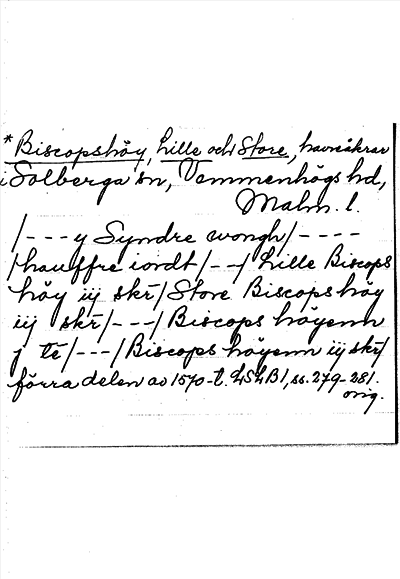 *Biscopshöy, Lille och Store, havreåkrar
i Solberga sn, Vemmenhögs hd,
Malm. l.
/---y Syndre wongh/----
/hauffre iordt/--/ Lille Biscops
höy iij skr/Store Biscops höy
iij skr/---/Biscops höyenn
j te/---/Biscops höyenn iij skr/
förra delen av 1570-t. LSLB1, ss. 279-281.
orig.